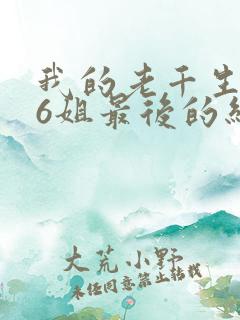 我的老干生
6姐最后的
大荒小野
未经同意禁止转载